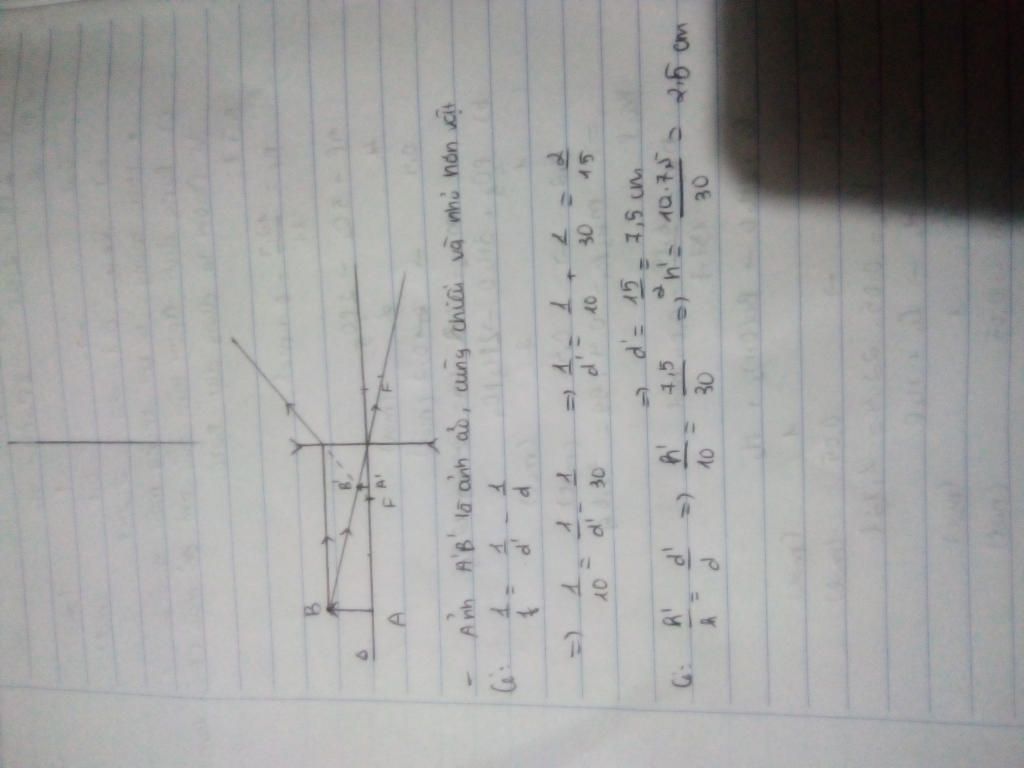 B
B'
Δ
A
F
A'
F'
- Ảnh A'B' là ảnh ảo, cùng chiều và nhỏ hơn vật
Có: 1/f = 1/d' - 1/d
=> 1/10 = 1/d' - 1/30 => 1/d' = 1/10 + 1/30 = 2/15
=> d' = 15/2 = 7,5 cm
Có: h'/h = d'/d => h'/10 = 7,5/30 => h' = 10.7,5/30 = 2,5 cm